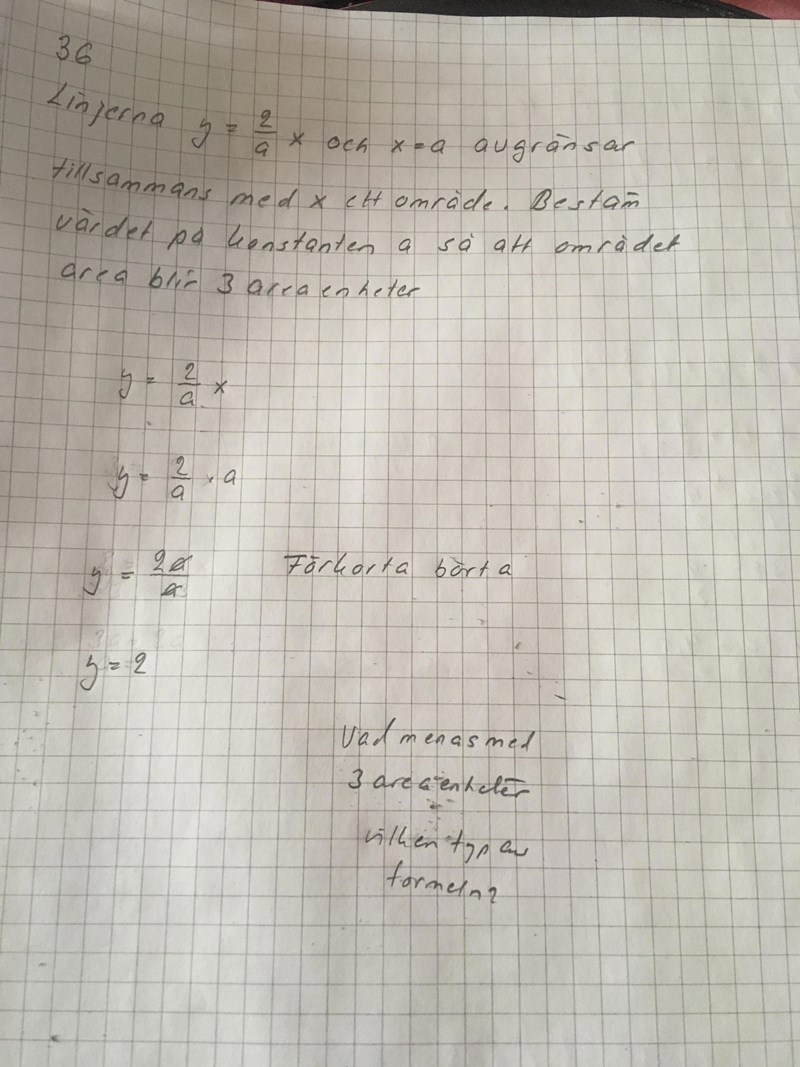 36
Linjerna y = 2/a x och x=a avgränsar
tillsammans med x ett område. Bestäm
värdet på konstanten a så att området
area blir 3 areaenheter
y = 2/a x
y = 2/a · a
y = 2a/a Förkorta bort a
y = 2
Vad menas med
3 areaenheter
vilken typ av
formeln?